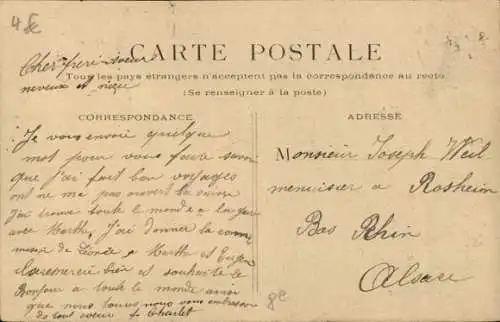 4 8e
Cher frere soeur
neveux et niece
CARTE POSTALE
Tous les pays étrangers n'acceptent pas la correspondance au recto
(Se renseigner à la poste)
CORRESPONDANCE
Je vous envoie quelque
mot pour vous faire savoir
que j'ai fait bon voyages
ont ne m'a pas ouvert la
j'ai trouve toute le monde a la gare
avec Marthe, J'ai donner la
de a Marthe et
bien et souhaite le
Bonjour a toute le monde ainsi
que nous tous nous vous embrasson
de tout coeur
ADRESSE
Monsieur Joseph Weil
menuisier a Rosheim
Bas Rhin
Alsace
8e